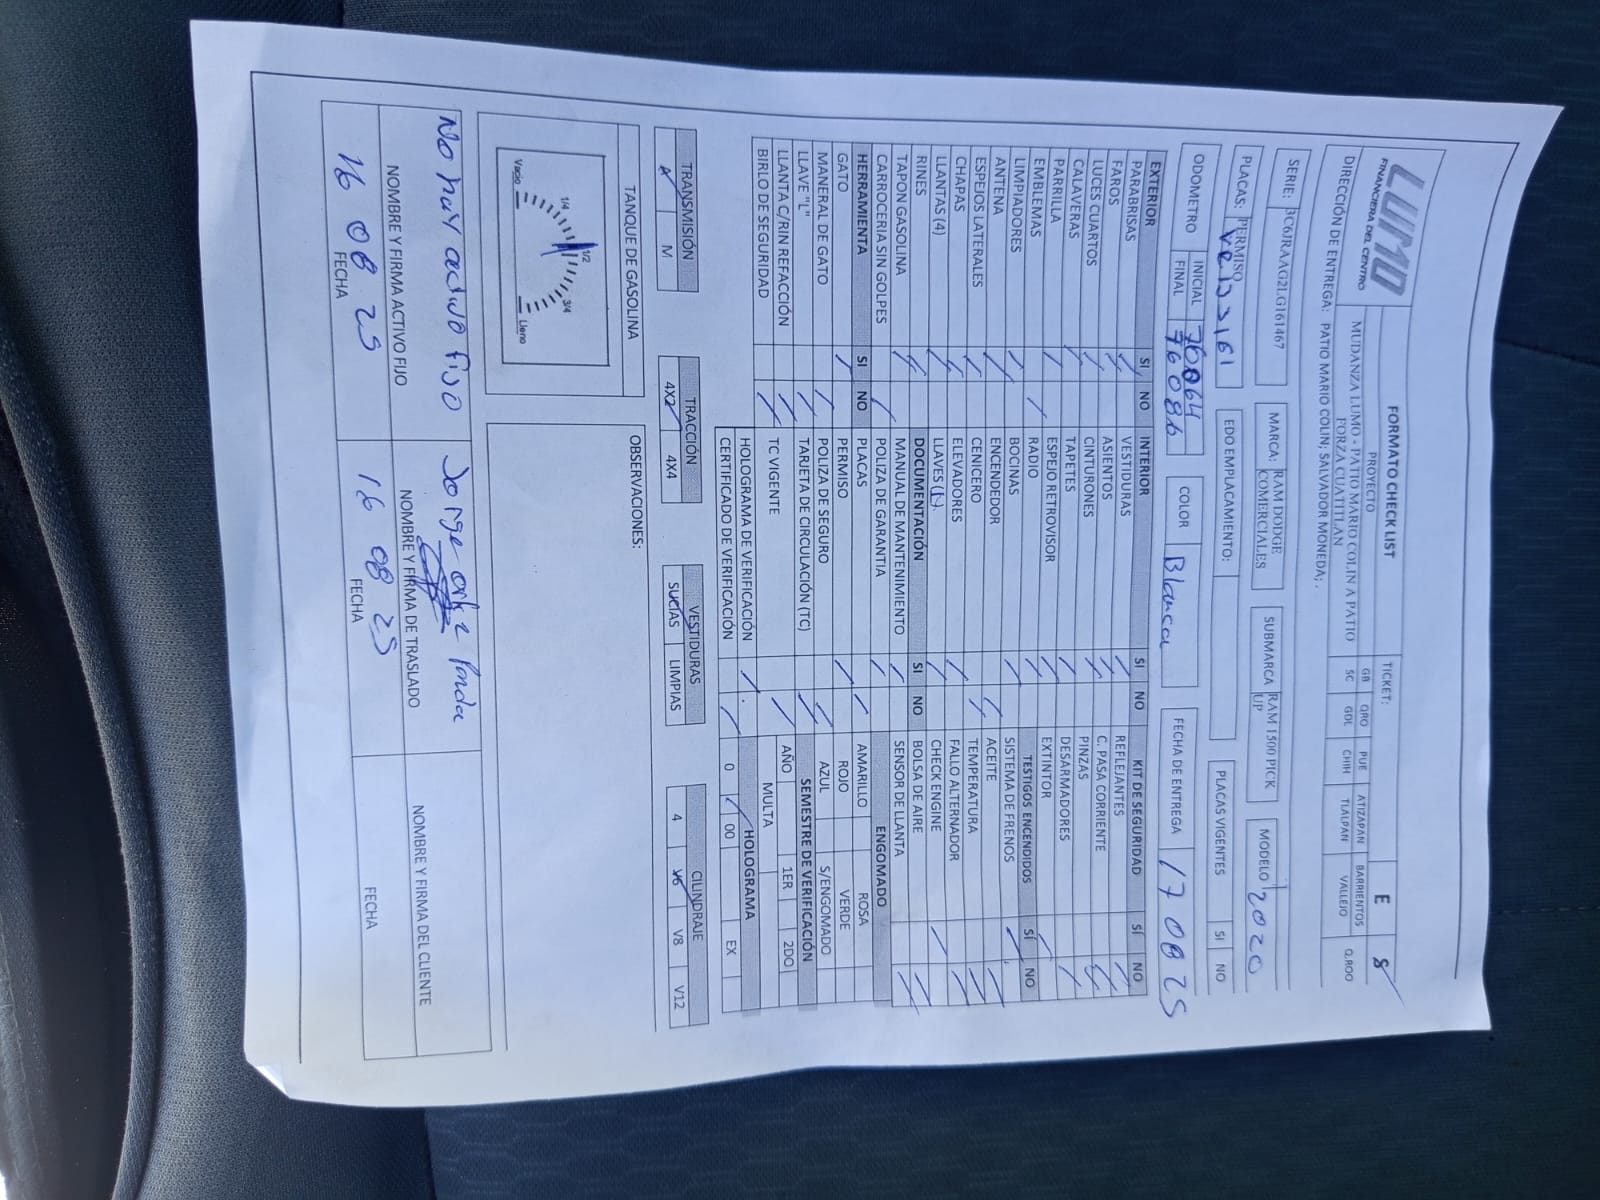 LUMO
FINANCIERA DEL CENTRO
FORMATO CHECK LIST
TICKET:
E
S
PROYECTO
MUDANZA LUMO - PATIO MARIO COLIN A PATIO
FORZA CUATITLAN
GB QRO PUE ATIZAPAN BARRIENTOS Q.ROO
SC GDL CHIH TLALPAN VALLEJO
DIRECCIÓN DE ENTREGA: PATIO MARIO COLIN; SALVADOR MONEDA; .
SERIE: 3C6JRAAG2LG161467
MARCA: RAM DODGE COMERCIALES
SUBMARCA RAM 1500 PICK UP
MODELO 2020
PLACAS: PERMISO
EDO EMPLACAMIENTO:
PLACAS VIGENTES SI NO
ODOMETRO INICIAL 76064
FINAL 76086
COLOR Blanca
FECHA DE ENTREGA 17 08 25
EXTERIOR SI NO INTERIOR SI NO KIT DE SEGURIDAD SÍ NO
PARABRISAS VESTIDURAS REFLEJANTES
FAROS ASIENTOS C. PASA CORRIENTE
LUCES CUARTOS CINTURONES PINZAS
CALAVERAS TAPETES DESARMADORES
PARRILLA ESPEJO RETROVISOR EXTINTOR
EMBLEMAS RADIO TESTIGOS ENCENDIDOS SÍ NO
LIMPIADORES BOCINAS SISTEMA DE FRENOS
ANTENA ENCENDEDOR ACEITE
ESPEJOS LATERALES CENICERO TEMPERATURA
CHAPAS ELEVADORES FALLO ALTERNADOR
LLANTAS (4) LLAVES ( ). CHECK ENGINE
RINES DOCUMENTACIÓN SI NO BOLSA DE AIRE
TAPON GASOLINA MANUAL DE MANTENIMIENTO SENSOR DE LLANTA
CARROCERIA SIN GOLPES POLIZA DE GARANTIA ENGOMADO
HERRAMIENTA SI NO PLACAS AMARILLO ROSA
GATO PERMISO ROJO VERDE
MANERAL DE GATO POLIZA DE SEGURO AZUL S/ENGOMADO
LLAVE "L" TARJETA DE CIRCULACIÓN (TC) SEMESTRE DE VERIFICACIÓN
LLANTA C/RIN REFACCIÓN TC VIGENTE AÑO 1ER 2DO
BIRLO DE SEGURIDAD HOLOGRAMA DE VERIFICACIÓN MULTA
CERTIFICADO DE VERIFICACIÓN HOLOGRAMA
0 00 EX
TRANSMISIÓN TRACCIÓN VESTIDURAS CILINDRAJE
A M 4X2 4X4 SUCIAS LIMPIAS 4 V6 V8 V12
TANQUE DE GASOLINA
Vacio 1/4 1/2 3/4 Lleno
OBSERVACIONES:
No hay activo fijo
Jorge
NOMBRE Y FIRMA ACTIVO FIJO
NOMBRE Y FIRMA DE TRASLADO
NOMBRE Y FIRMA DEL CLIENTE
16 08 25
16 08 25
FECHA
FECHA
FECHA